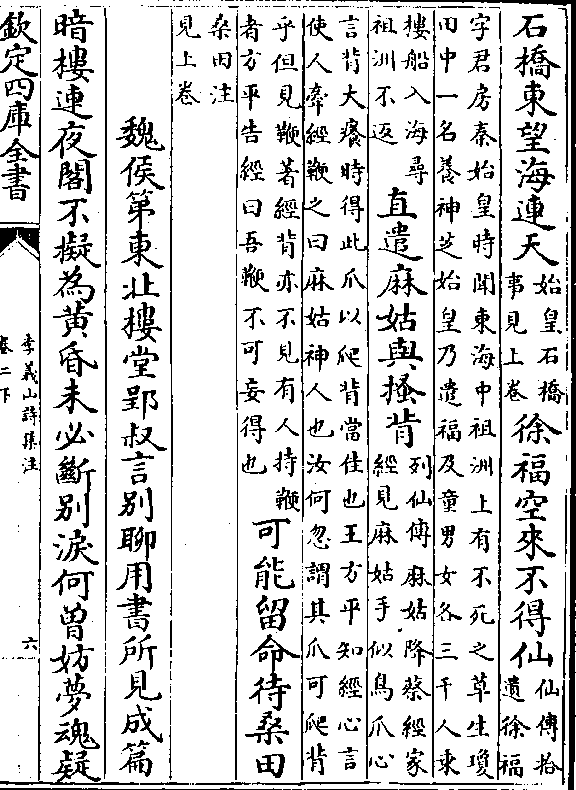 石橋東望海連天始皇石橋事見上卷徐福空來不得仙仙傳拾遺徐福
字君房秦始皇時聞東海中祖洲上有不死之草生瓊
田中一名養神芝始皇乃遣福及童男女各三千人乗
樓船入海尋祖洲不返直遣麻姑與搔背列仙傳麻姑降蔡經家經見麻姑手似鳥爪心
言背大癢時得此爪以爬背當佳也王方平知經心言
使人牽經鞭之曰麻姑神人也汝何忽謂其爪可爬背
乎但見鞭著經背亦不見有人持鞭者方平告經曰吾鞭不可妄得也可能留命待桑田
桑田注見上卷
魏侯第東北樓堂郢叔言別聊用書所見成篇
暗樓連夜閣不擬為黃昏未必斷別淚何曾妨夢魂疑
欽定四庫全書
李義山詩集注
卷二下
六